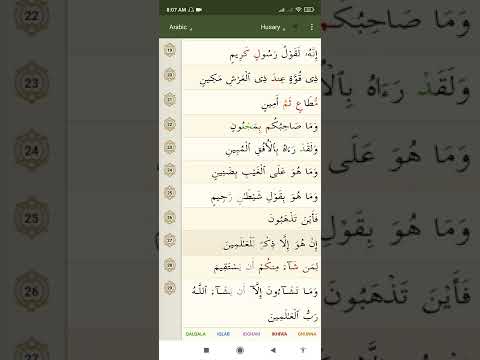 8:07 AM
Arabic
Husary
19 إِنَّهُۥ لَقَوْلُ رَسُولٍ كَرِيمٍ
20 ذِى قُوَّةٍ عِندَ ذِى ٱلْعَرْشِ مَكِينٍ
21 مُّطَاعٍ ثَمَّ أَمِينٍ
22 وَمَا صَاحِبُكُم بِمَجْنُونٍ
23 وَلَقَدْ رَءَاهُ بِٱلْأُفُقِ ٱلْمُبِينِ
24 وَمَا هُوَ عَلَى ٱلْغَيْبِ بِضَنِينٍ
25 وَمَا هُوَ بِقَوْلِ شَيْطَٰنٍ رَّجِيمٍ
26 فَأَيْنَ تَذْهَبُونَ
27 إِنْ هُوَ إِلَّا ذِكْرٌ لِّلْعَٰلَمِينَ
28 لِمَن شَآءَ مِنكُمْ أَن يَسْتَقِيمَ
29 وَمَا تَشَآءُونَ إِلَّآ أَن يَشَآءَ ٱللَّهُ
رَبُّ ٱلْعَٰلَمِينَ
QALQALA IQLAB IDGHAM IKHFAA GHUNNA